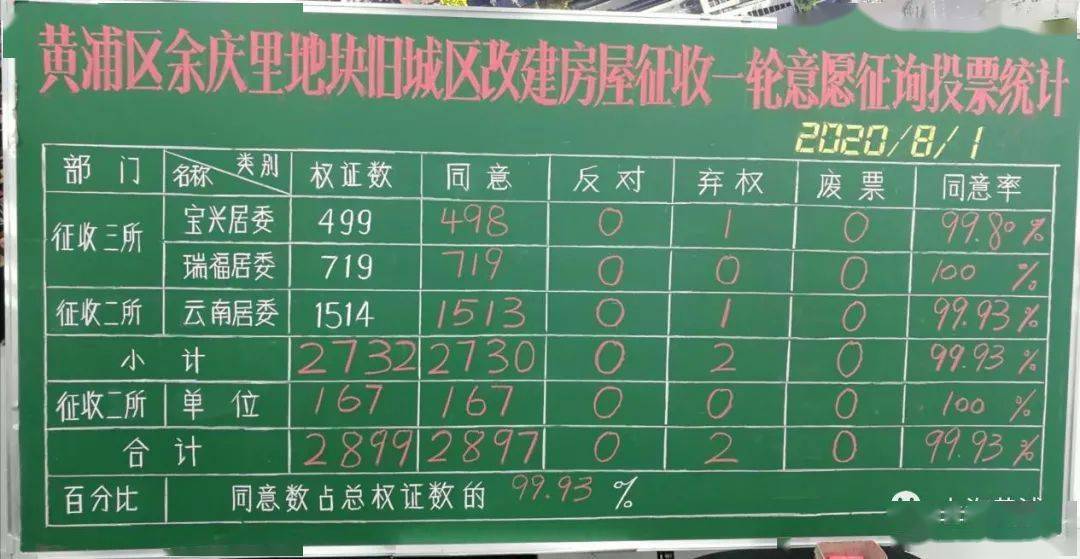 黄浦区余庆里地块旧城区改建房屋征收一轮意愿征询投票统计
2020/8/1
部门 名称 类别 权证数 同意 反对 弃权 废票 同意率
征收三所 宝兴居委 499 498 0 1 0 99.80%
瑞福居委 719 719 0 0 0 100 %
征收二所 云南居委 1514 1513 0 1 0 99.93%
小计 2732 2730 0 2 0 99.93%
征收二所 单位 167 167 0 0 0 100 %
合计 2899 2897 0 2 0 99.93%
百分比 同意数占总权证数的 99.93 %